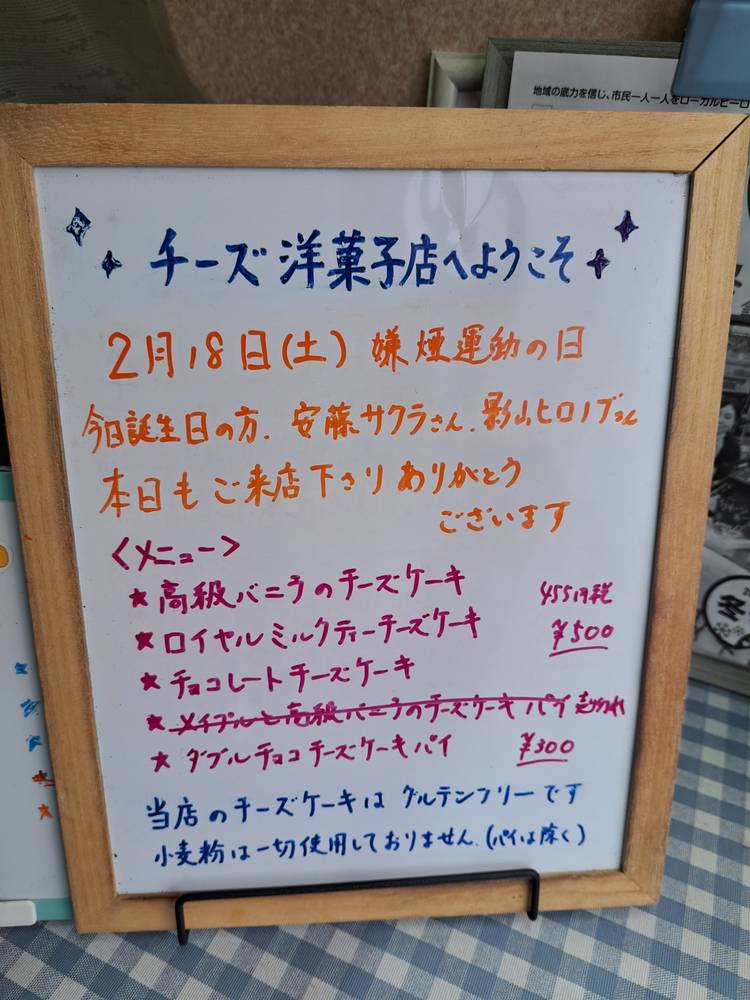 地域の底力を信じ、市民一人一人をローカルヒーロ
チーズ洋菓子店へようこそ
2月18日(土) 嫌煙運動の日
今日誕生日の方、安藤サクラさん、影山ヒロノブさん
本日もご来店下さりありがとう
ございます
〈メニュー〉
★高級バニラのチーズケーキ
455円税
★ロイヤルミルクティーチーズケーキ ¥500
★チョコレートチーズケーキ
★メイプルと高級バニラのチーズケーキパイ 売切れ
★ダブルチョコチーズケーキパイ ¥300
当店のチーズケーキはグルテンフリーです
小麦粉は一切使用しておりません。(パイは除く)